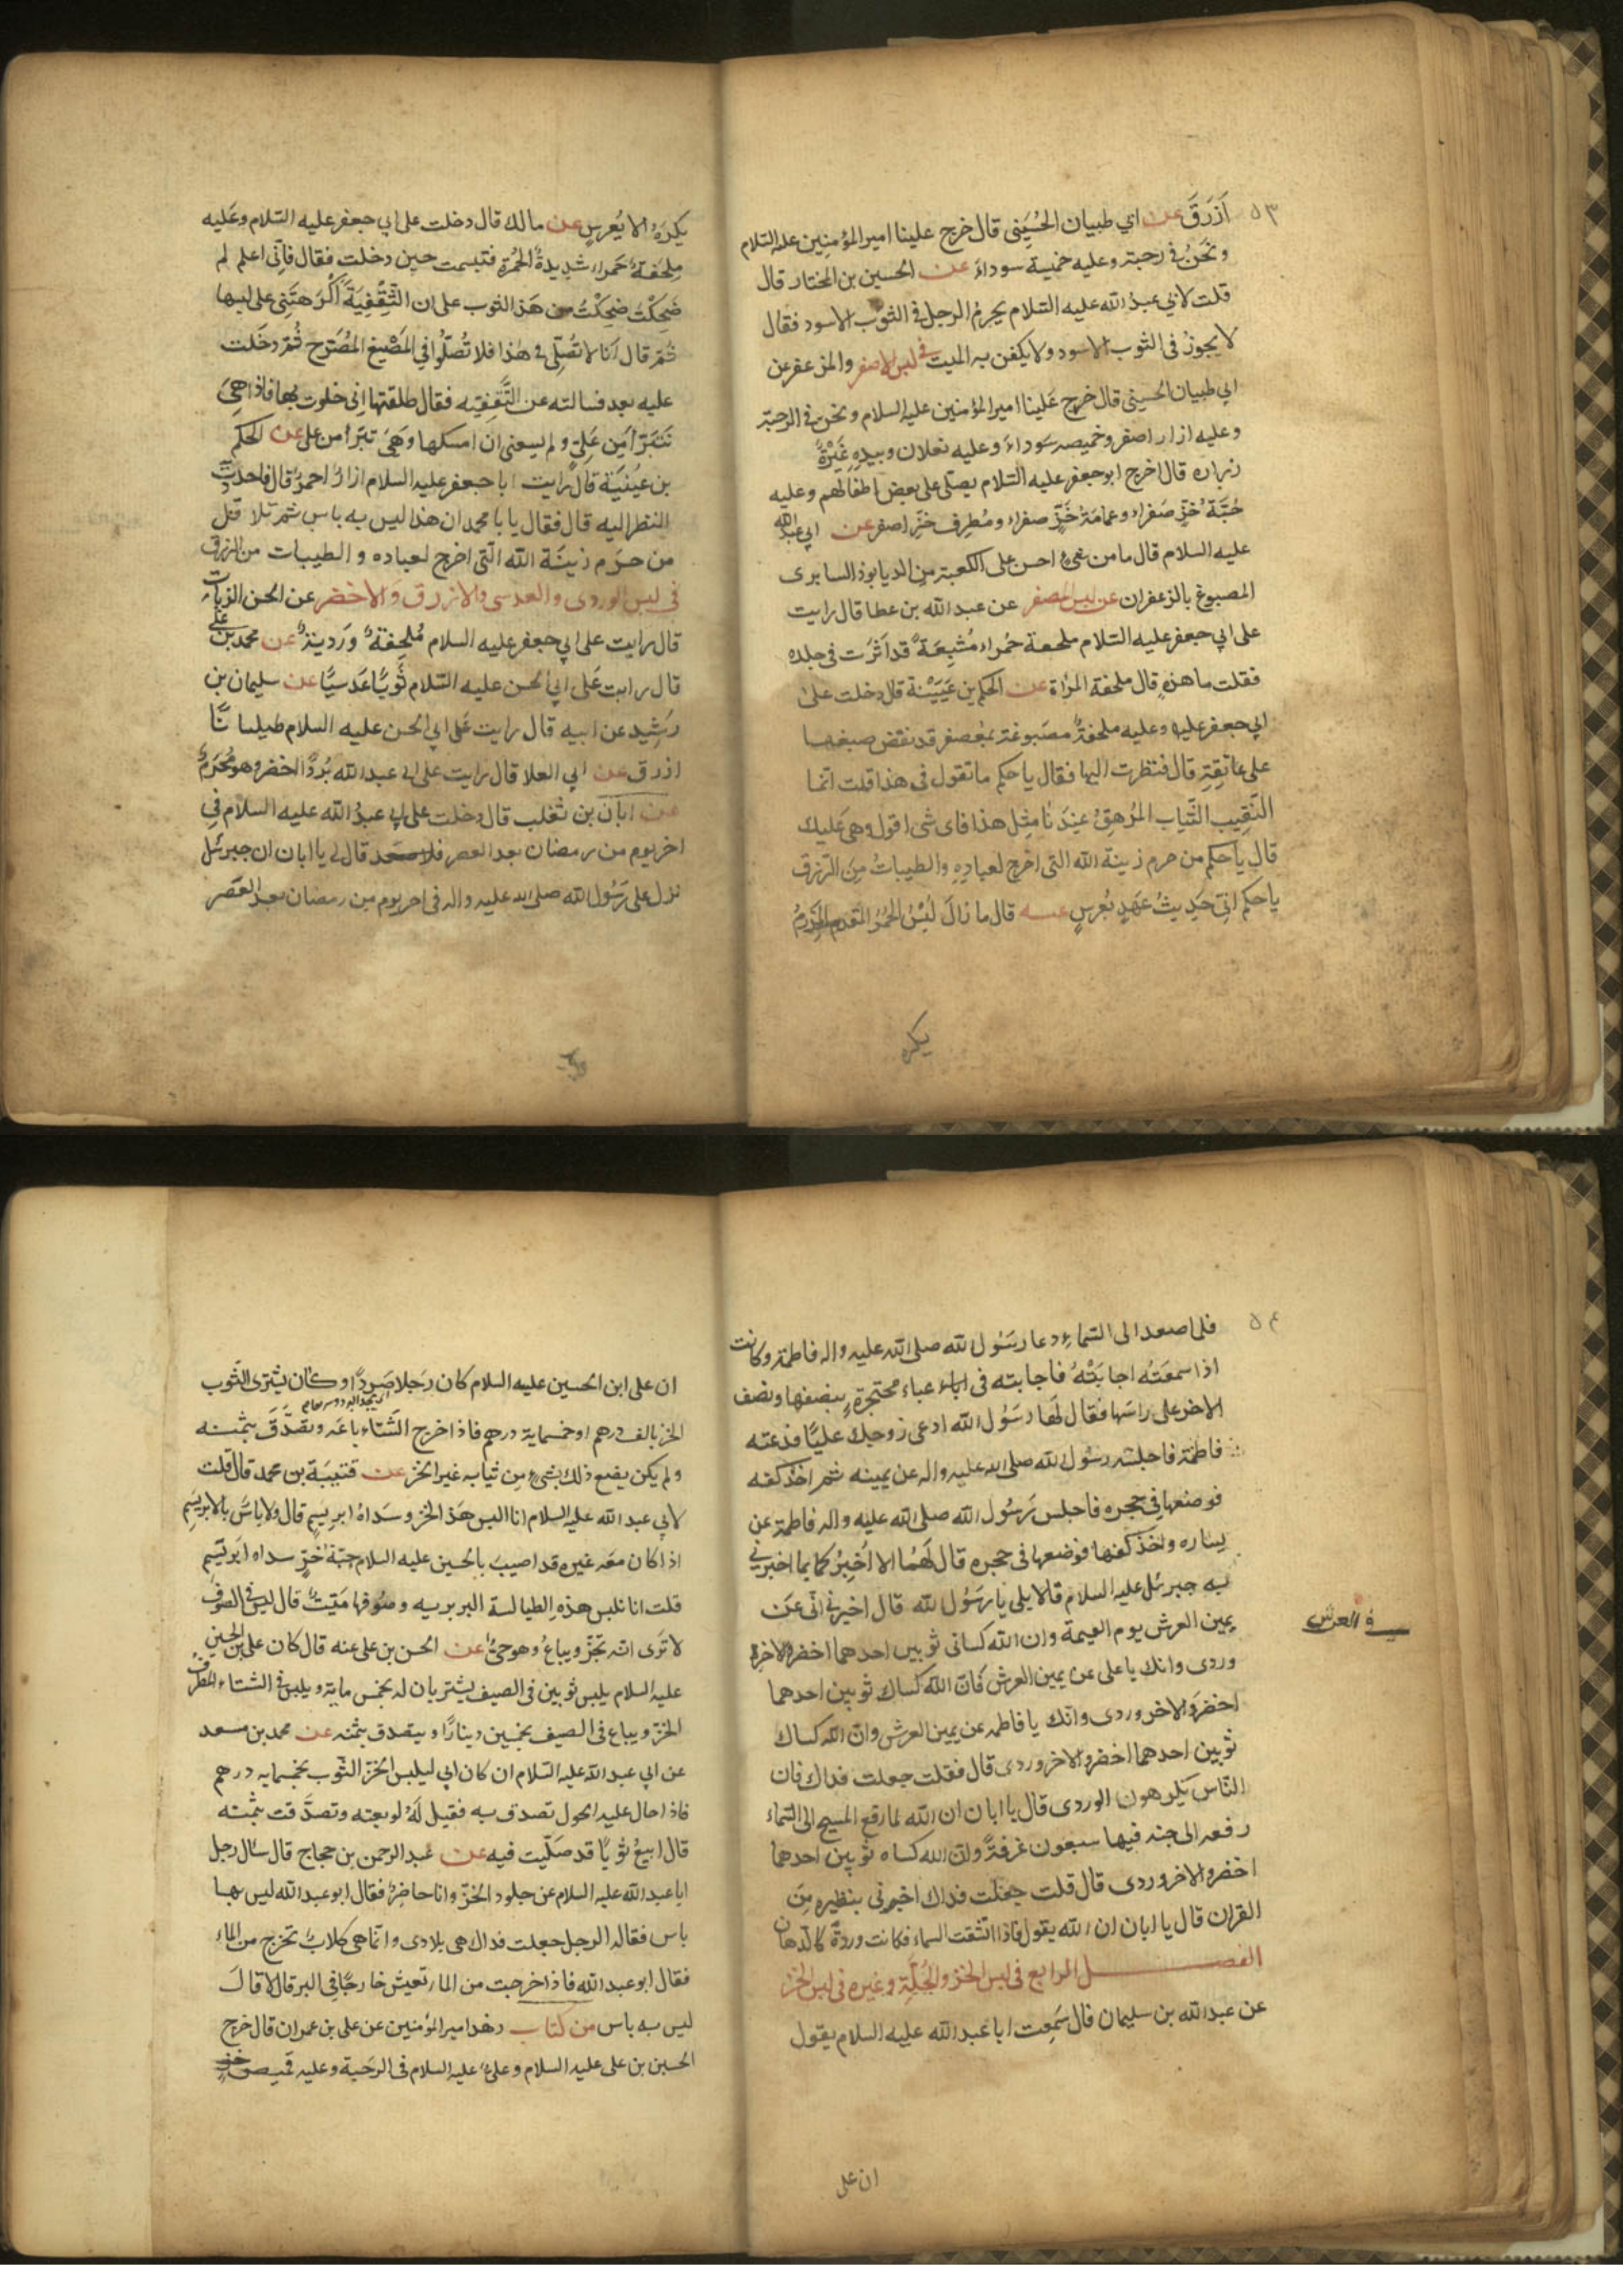 ٥٣
اَزرَق عن ابي طبيان الحُسَيني قال خرج علينا امير المؤمنين عليه السلام
ونحنُ في رحبة وعليه خميسة سوداء عن الحسين بن المختار قال
قلت لابي عبدُ الله عليه السلام يحرمُ الرجل في الثوب الاسود فقال
لا يجوزُ في الثوب الاسود ولا يكفن به الميت في لبس الاصفر والمزعفر عن
ابي طبيان الحسيني قال خرج عَلينا امير المؤمنين عليه السلام ونحن في الرحبة
وعليه ازار اصفر وخميصه سَوداءَ وعليه نعلان وبيدهِ عَنَزةً
زراره قال اخرج ابو جعفر عليه السّلام يصلي على بعض اطفالهم وعليه
جُبّة خُزّ صَفراء وعمامَة خَزّ صفراء ومُطرِف خزّ اصفر عن ابي عبد الله
عليه السلام قال ما من شيءٍ احسن على الكعبة من الديابوذ السابرى
المصبوغ بالزعفران عن لبس المعصفر عن عبد الله بن عطا قال رايت
على ابي جعفر عليه السّلام ملحفة حمراء مُشبِعَةً قد اَثرَت في جلده
فقلت ما هذهِ قال ملحفة المرأة عن الحكم بن عَيَيْنة قال دخلت على
ابي جعفر عليه وعليه ملحفةٌ مصَبوغة بعُصفر قد نفض صبغها
على عاتقِهِ قال فنظرت اليها فقال يا حكم ما تقول في هذا قلت انما
النَقيب الثّياب المُرهِقُ عِندَنا مثِل هذا فاى شى اقول وهى عَليك
قال يا حكم من حرم زينة الله التى اخرج لعبادِهِ والطيباتُ مِن الرّزق
يا حكم انّي حَدِيثُ عَهَدٍ بعُرسٍ عنه قال ما زالَ لبُسْ الحُمرُ المقدم
يكره
يكرَهُ الا بعُرسٍ عن مالك قال دخلت على ابي جعفر عليه السّلام وعَليه
مِلحَفةٌ حَمراء شدِيدةُ الحُمرةِ فتبسمت حين دخلت فقال فانّى اعلم لم
ضَحِكْتَ ضحِكْتُ من هَذا الثوب على ان الثَّقِفِيَةَ اَكْرَهتَنِى على لبسها
ثُمّ قال اَنا لا نُصَلّى في هٰذا فلا تُصَلّوا في المَصْبِغ المُضَرَح ثُمّ دخَلت
عليه بعد فسالته عن الثَّقفِيّه فقال طلقتها اِنى خلوت بها فاذا هىَ
تَتَبَرّأ مِن عَلِىّ ولم يسعنى ان امسكها وَهىَ تبَرّأ من على عن الحكم
بن عيُنَيَة قال رايت ابا جعفر عليه السلام ازارٌ احمرُ قال فاحددتُ
النظر اليه قال فقال يا با محمد ان هذا ليس به باس ثم تلا قل
من حرَم زينَة الله التى اخرج لعباده والطيبات من الرزق
في لبس الوردى والعدسى والازرق والاخضر عن الحسن الزيات
قال رايت على ابي جعفر عليه السلام مُلحِفةٌ وَردِيةٌ عن محمد بن علي
قال رايت عَلى ابي الحسن عليه السّلام ثَوبًا عَدَسيًّا عن سليمان بن
رَشِيد عن ابيه قال رايت عَلى ابي الحسن عليه السلام طيلسانًا
ازرق عن ابي العلا قال رايت على ابى عبد الله بُردًا اخضر وهو مُحرَمٌ
عن ابان بن تغلب قال دخلت على ابي عبدُ الله عليه السلام في
اخر يوم من رمضان بعد العصر قال لى يا ابان ان جبرئل
نزل على رَسُول الله صلى الله عليه واله في اخر يوم من رمضان بعد العَصر
٥٤
فلما صعد الى السّماء دعا رسَول الله صلى الله عليه واله فاطمة وكانت
اذا سمعَتْه اجابَتْهُ فاجابته في عباء محتجرةٍ بنصفها ونصف
الاخر على راسَها فقال لهَا رسَول الله ادعى زوجك عليًّا فدعته
فاطمة فاجلسه رسُول الله صلى الله عليه واله عن يمينه ثم اخذ كفه
فوضعها في حجره فاجلس رَسُول الله صلى الله عليه واله فاطمة عن
يساره واخذ كفها فوضعها في حجره قال لَهُما الا اُخبِرُ كما بما اخبرني
به جبرئل عليه السلام قالا بلى يا رسَوُل الله قال اخبرني انّى عن
يمين العرش يوم القيمة وان الله كسانى ثوبين احدهما اخضر والاخرة
وردى وانك يا على عن يمين العرش فان الله كساك ثوبين احدهما
في العرش
اخضر والاخر وردى وانك يا فاطمه عن يمين العرش وان الله كساك
ثوبين احدهما اخضر والاخر وردى قال فقلت جعلت فداك فان
النّاس يَكرهون الوردى قال يا ابان ان الله لما رفع المسيح الى السّماء
رفعه الى جنه فيها سبعون غرفةً وان الله كساه ثوبين احدهما
اخضر والاخر وردى قال قلت جعلت فداك اخبرنى بنظيره مِن
القران قال يا ابان ان الله يقول فاذا انشقت السماء فكانت وردةً كالدّهان
الفصل الرابع في لبس الخز والحُلّة وغيره في لبس الخز
عن عبد الله بن سليمان قال سَمِعت ابا عبد الله عليه السلام يقول
ان على
ان على ابن الحسين عليه السلام كان رَجلا صَردًا وكان يشترى الثوب
الخز بالف درهم او خمسماية درهم فاذا خرج الشّتاء باعَه وتصَدَّقَ بثمنه
ولم يكن يصنع ذلك بشىءٍ مِن ثيابه غير الخز عن قتيبَة بن محمد قال قلت
لابي عبد الله عليه السلام انا البس هَذا الخز وسَداهُ ابرِيسِم قال ولا باسَ بالابريسَمِ
اذا كان معَه غيره قد اصيبَ بالحسين عليه السلام جبّة خزّ سداه ابَرِيسِم
قلت انا نلبس هذهِ الطيالسة البربريه وصُوفها مَيّتٌ قال ليس في الصُوف
لا ترَى انّه تجَزّ ويباعُ وهو حىٌّ عن الحسن بن على عنه قال كان على بن الحسين
عليه السلام يلبس ثوبين في الصيف يشتريان له بخمس ماية ويلبس في الشتاء المطرف
الخزّ ويباع في الصيف بخمسين دينارًا ويتصدق بثمنه عن محمد بن مسعد
عن ابي عبد الله عليه السّلام ان كان ابي ليلبس الخز الثّوب بخمسمايه درهم
فاذا حال عليه الحول تصدق به فقيل لَهُ لو بعته وتصدَّقت بثمنه
قال ابيعُ ثوبًا قد صَلّيت فيه عن عبد الرحمن بن حجاج قال سال رجل
ابا عبد الله عليه السلام عن جلود الخزّ وانا حاضِرٌ فقال ابو عبد الله ليس بها
باس فقاله الرجل جعلت فداك هى بلادى وانما هى كلابٌ تخرج من الماء
فقال ابو عبد الله فاذا خرجت من الماء تعيش خارجًا في البر قال لا قالَ
ليس به باس من كتاب زهد امير المؤمنين عن على بن عمران قال خرج
الحسين بن على عليه السلام وعلىٌ عليه السلام في الرحَبة وعليه قميص خزٍ